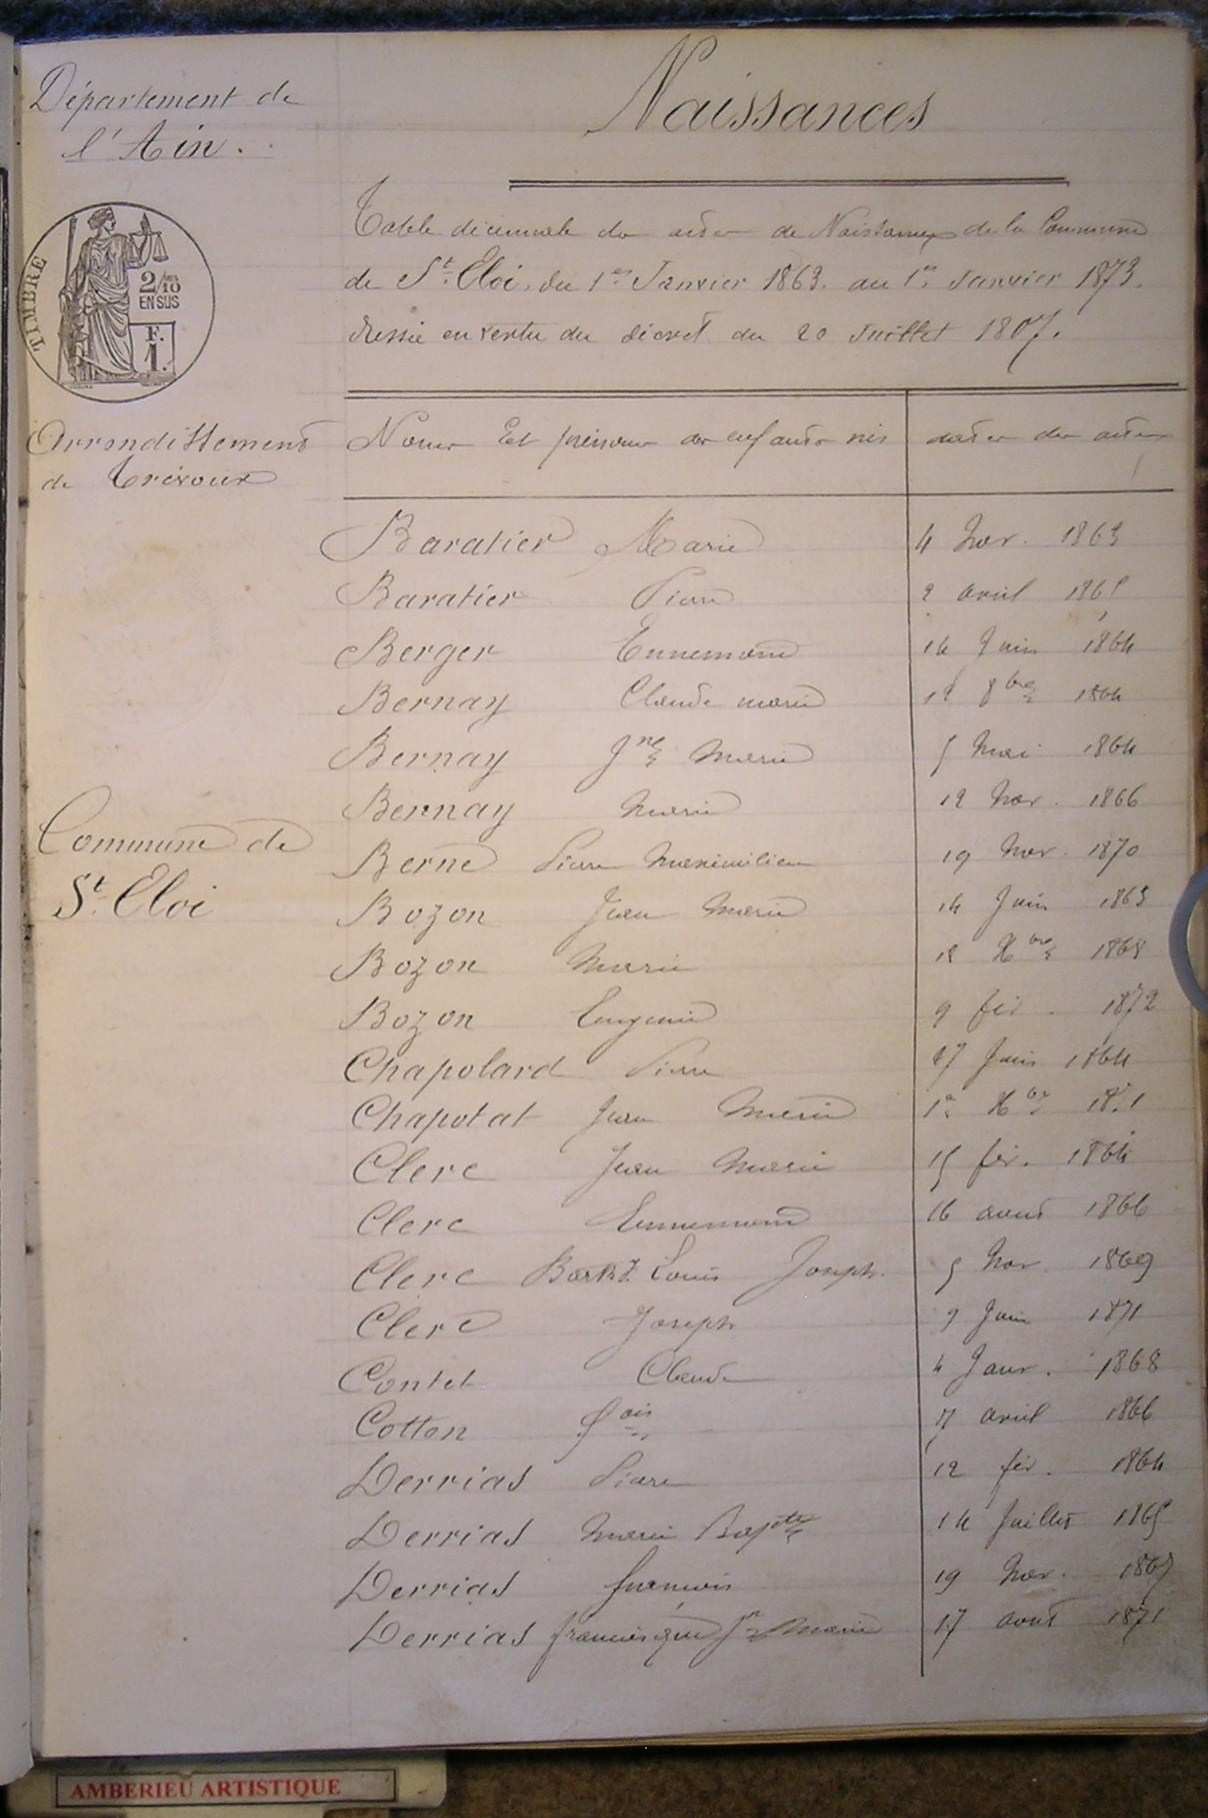 Département de
l'Ain.
Naissances
TIMBRE
2/10
EN SUS
F.
1.
Table décennale des actes de Naissances de la Commune
de St. Eloi, du 1er Janvier 1863. au 1er Janvier 1873.
dressée en vertu du décret du 20 Juillet 1807.
Arrondissement
de Trévoux
Noms Et prénoms des enfants nés
dates des actes
Commune de
St. Eloi
Baratier Marie 4 Nov. 1863
Baratier Pierre 2 avril 1865
Berger Ennemond 14 Juin 1864
Bernay Claude marie 12 8bre 1864
Bernay Jne Marie 5 Mai 1864
Bernay Marie 12 Nov. 1866
Berne Pierre Maximilien 19 Nov. 1870
Bozon Jean Marie 14 Juin 1863
Bozon Marie 18 Xbre 1868
Bozon Eugenie 9 fév. 1872
Chapolard Pierre 27 Juin 1864
Chapotat Jean Marie 1er Xbre
Clerc Jean Marie 15 fév. 1864
Clerc Ennemond 16 aout 1866
Clerc Barth. Louis Joseph. 5 Nov 1869
Clerc Joseph 9 Juin 1871
Contet Claude 4 Janv. 1868
Cotton fois 7 avril 1866
Derrias Pierre 12 fév. 1864
Derrias Marie Bapte 14 Juillet 1865
Derrias francois 19 Nov. 1867
Derrias francisque Jn Marie 17 aout 1871
AMBERIEU ARTISTIQUE